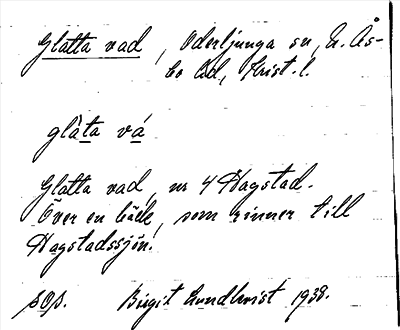 Glatta vad, Oderljunga sn, N. Ås-
bo hd, Krist. l.
glàta vá
Glatta vad, nr 4 Hagstad.
Över en bäck, som rinner till
Hagstadssjön.
sOs. Birgit Lundkvist 1938.